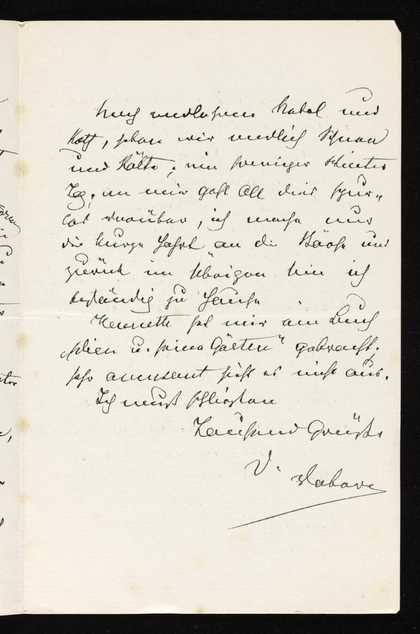 Nach endlosem Nebel und
Koth, haben wir endlich Schnee
und Kälte, ein sonniger Winter
Tag, an mir geht All dies spur-
los vorüber, ich mache nur
die kurze Fahrt an die Börse und
zurück im Übrigen bin ich
beständig zu Hause
Henriette hat mir ein Buch
„Wien u. seine Gärten" gebracht.
sehr amusant sieht es nicht aus.
Ich muß schließen
Tausend Grüße
V.